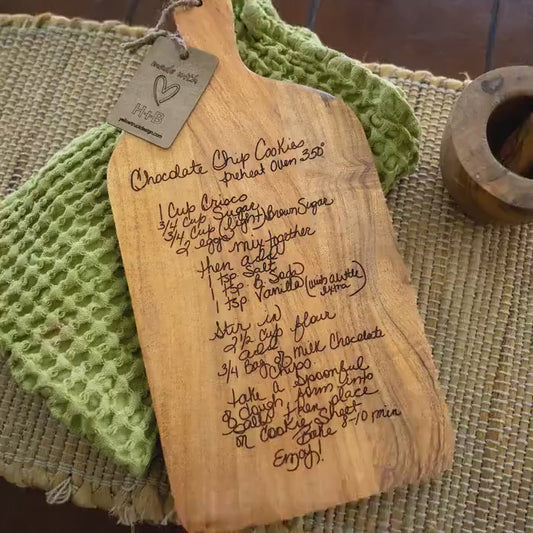 made with
H+B
Chocolate Chip Cookies
preheat oven 350°
1 Cup Crisco
3/4 Cup Sugar
3/4 Cup (light) Brown Sugar
2 eggs mix together
then add
1 tsp Salt
1 tsp B. Soda
1 tsp Vanilla (with a little extra)
Stir in
2 1/2 Cup flour
add
3/4 Bag of Milk Chocolate
Chips
take a spoonful
of dough form into
balls then place
on Cookie Sheet
Bake 8-10 min
Enjoy!